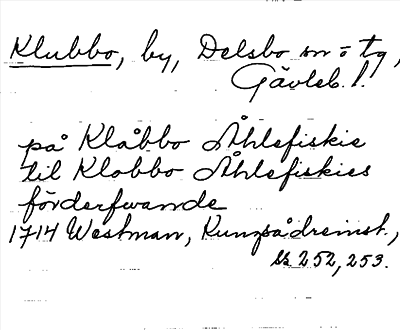 Klubbo, by, Delsbo sn o tg,
Gävleb. l.
på Klåbbo Åhlefiskie
til Klobbo Åhlefiskies
förderfwande
1714 Westman, Kungsådreinst.,
ss 252, 253.